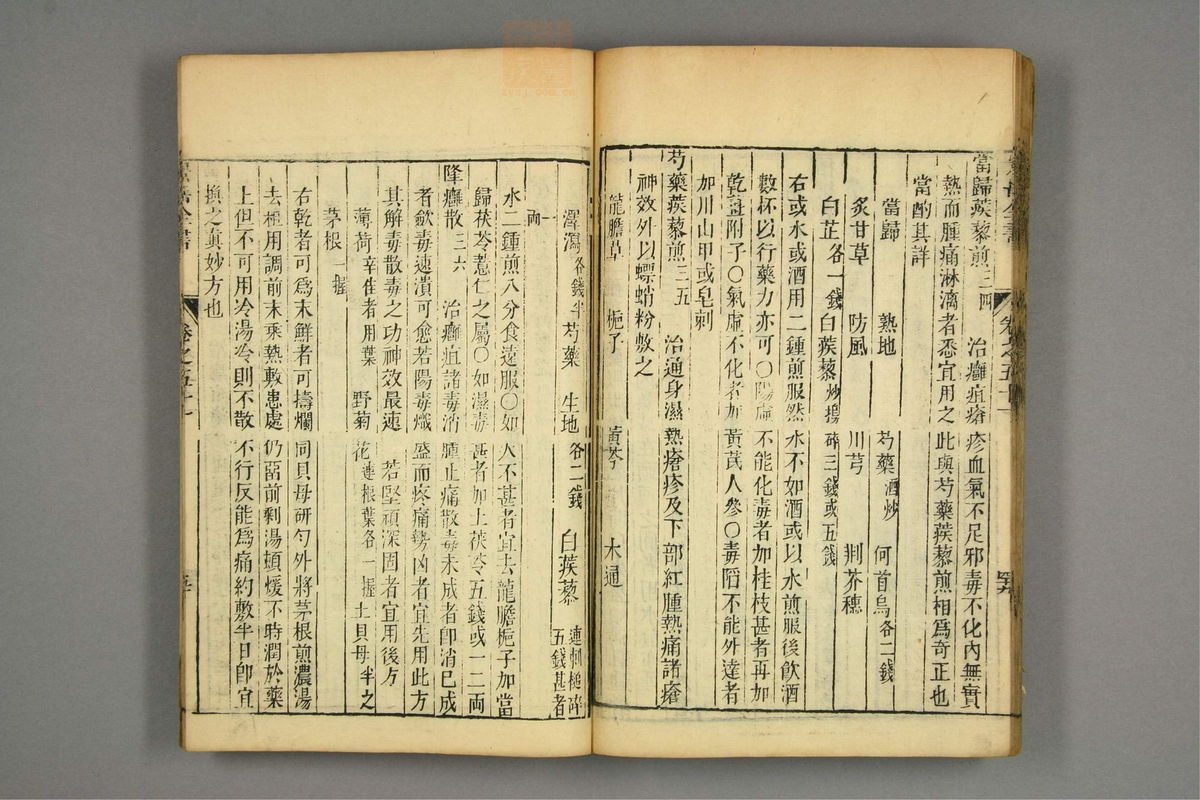 當歸蒺藜煎三四 治癰疽瘡疹血氣不足邪毒不化內無實
熱而腫痛淋漓者悉宜用之此與芍藥蒺藜煎相爲奇正也
當酌其詳
當歸 熟地 芍藥酒炒 何首烏各二錢
炙甘草 防風 川芎 荆芥穗
白芷各一錢 白蒺藜炒搗碎三錢或五錢
右或水或酒用二鍾煎服然水不如酒或以水煎服後飲酒
數杯以行藥力亦可〇陽虛不能化毒者加桂枝甚者再加
乾薑附子〇氣虛不化者加黃芪人參〇毒陷不能外達者
加川山甲或皂刺
芍藥蒺藜煎三五 治通身濕熱瘡疹及下部紅腫熱痛諸瘡
神效外以螵蛸粉敷之
龍膽草 梔子 黃芩 木通
澤瀉各錢半 芍藥 生地各二錢 白蒺藜連刺槌碎五錢甚者一兩
水二鍾煎八分食遠服〇如火不甚者宜去龍膽梔子加當
歸茯苓薏仁之屬〇如濕毒甚者加土茯苓五錢或一二兩
降癰散三六 治癰疽諸毒消腫止痛散毒未成者卽消已成
者斂毒速潰可愈若陽毒熾盛而疼痛勢凶者宜先用此方
其解毒散毒之功神效最速 若堅頑深固者宜用後方
薄荷辛佳者用葉 野菊花連根葉各一握 土貝母半之
茅根一握
右乾者可爲末鮮者可擣爛同貝母研勻外將茅根煎濃湯
去柤用調前末乘熱敷患處仍留前剩湯頓煖不時潤於藥
上但不可用冷湯冷則不散不行反能爲痛約敷半日卽宜
換之眞妙方也
景岳全書
卷之五十一
五十